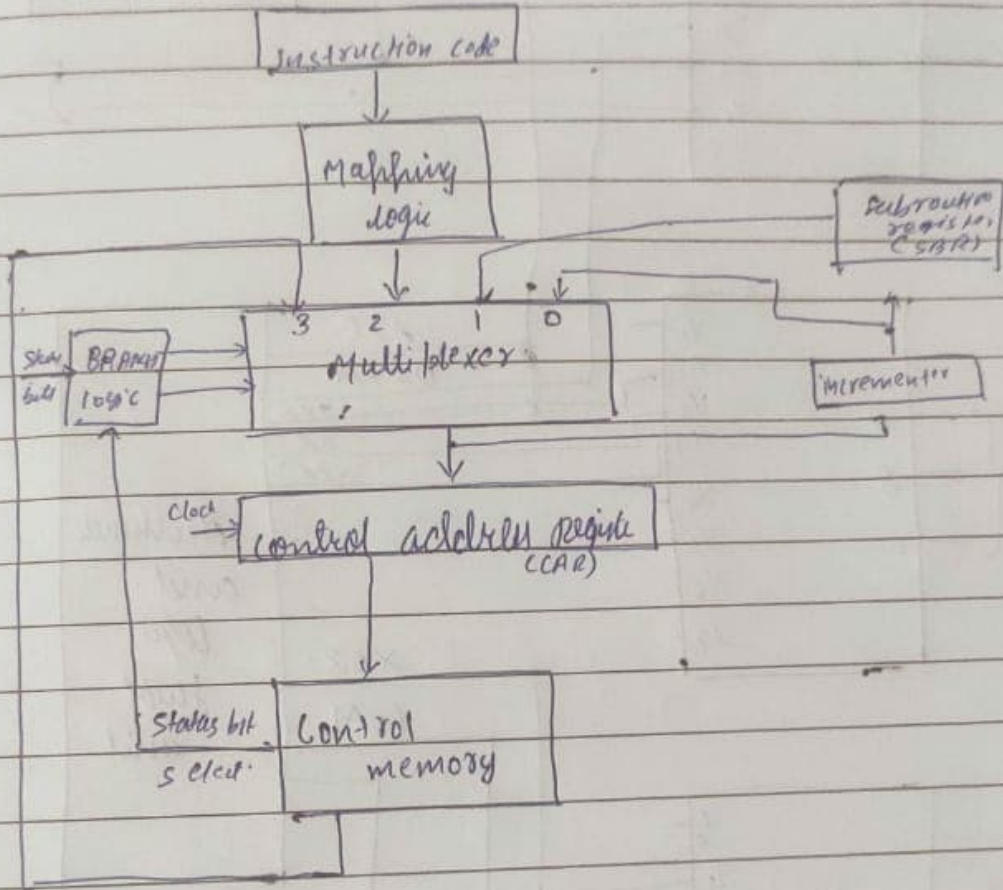 Instruction code
Mapping
logic
Subroutine
register
(SBR)
3 2 1 0
Multiplexer
Status
bits
BRANCH
logic
incrementer
Clock
control address register
(CAR)
Status bit
select.
Control
memory